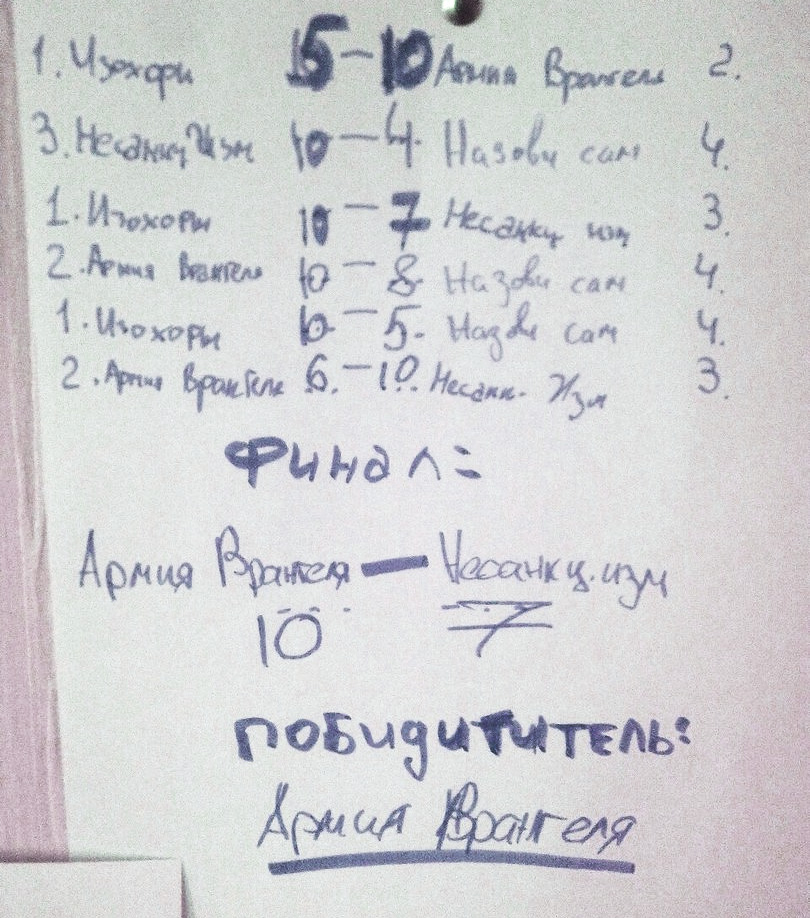 1. Изохоры 5 – 10 Армия Врангеля 2.
3. Несанкц Изм 10 – 4. Назови сам 4.
1. Изохоры 10 – 7 Несанкц изм 3.
2. Армия Врангеля 10 – 8 Назови сам 4.
1. Изохоры 10 – 5. Назови сам 4.
2. Армия Врангеля 6. – 10. Несанк. Изм 3.
ФИНАЛ:
Армия Врангеля – Несанкц. изм
10 7
ПОБИДИТИТЕЛЬ:
Армия Врангеля